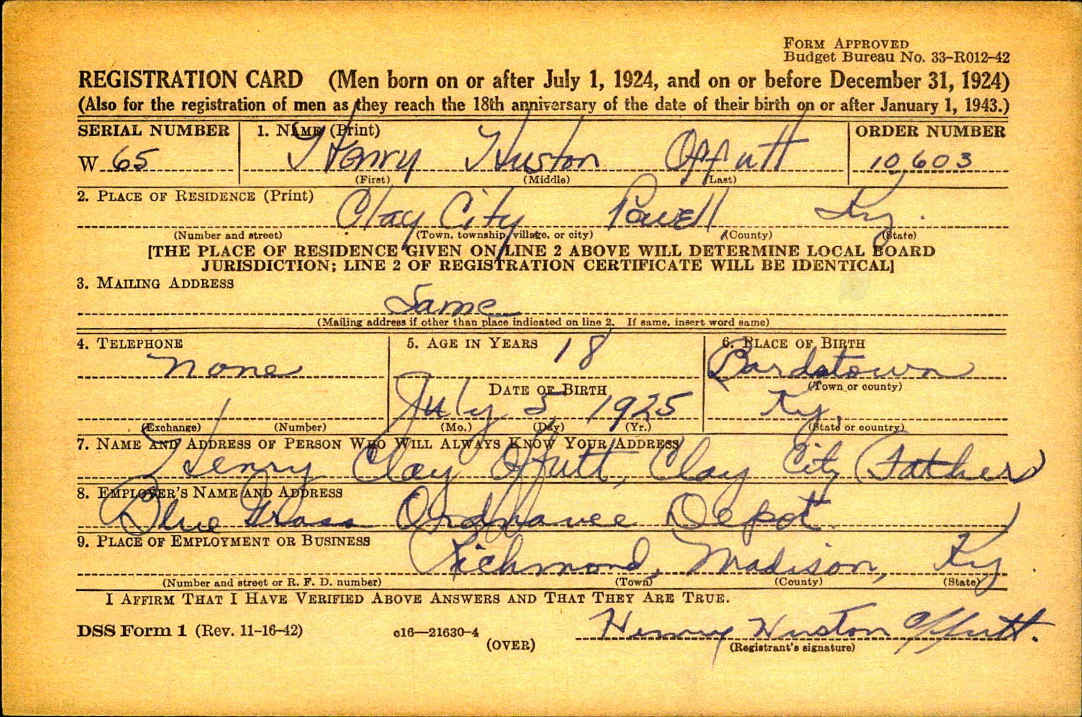 FORM APPROVED
Budget Bureau No. 33-R012-42
REGISTRATION CARD (Men born on or after July 1, 1924, and on or before December 31, 1924)
(Also for the registration of men as they reach the 18th anniversary of the date of their birth on or after January 1, 1943.)
SERIAL NUMBER 1. NAME (Print) ORDER NUMBER
W 65 Henry Huston Offutt 10,603
(First) (Middle) (Last)
2. PLACE OF RESIDENCE (Print)
Clay City Powell Ky.
(Number and street) (Town, township, village, or city) (County) (State)
[THE PLACE OF RESIDENCE GIVEN ON LINE 2 ABOVE WILL DETERMINE LOCAL BOARD
JURISDICTION; LINE 2 OF REGISTRATION CERTIFICATE WILL BE IDENTICAL]
3. MAILING ADDRESS
Same
(Mailing address if other than place indicated on line 2. If same, insert word same)
4. TELEPHONE 5. AGE IN YEARS 18 6. PLACE OF BIRTH
none Bardstown
DATE OF BIRTH (Town or county)
July 5, 1925 Ky.
(Exchange) (Number) (Mo.) (Day) (Yr.) (State or country)
7. NAME AND ADDRESS OF PERSON WHO WILL ALWAYS KNOW YOUR ADDRESS
Henry Clay Offutt, Clay City (Father)
8. EMPLOYER'S NAME AND ADDRESS
Blue Grass Ordnance Depot
9. PLACE OF EMPLOYMENT OR BUSINESS
Richmond, Madison, Ky
(Number and street or R. F. D. number) (Town) (County) (State)
I AFFIRM THAT I HAVE VERIFIED ABOVE ANSWERS AND THAT THEY ARE TRUE.
DSS Form 1 (Rev. 11-16-42) c16—21630-4 Henry Huston Offutt.
(OVER) (Registrant's signature)